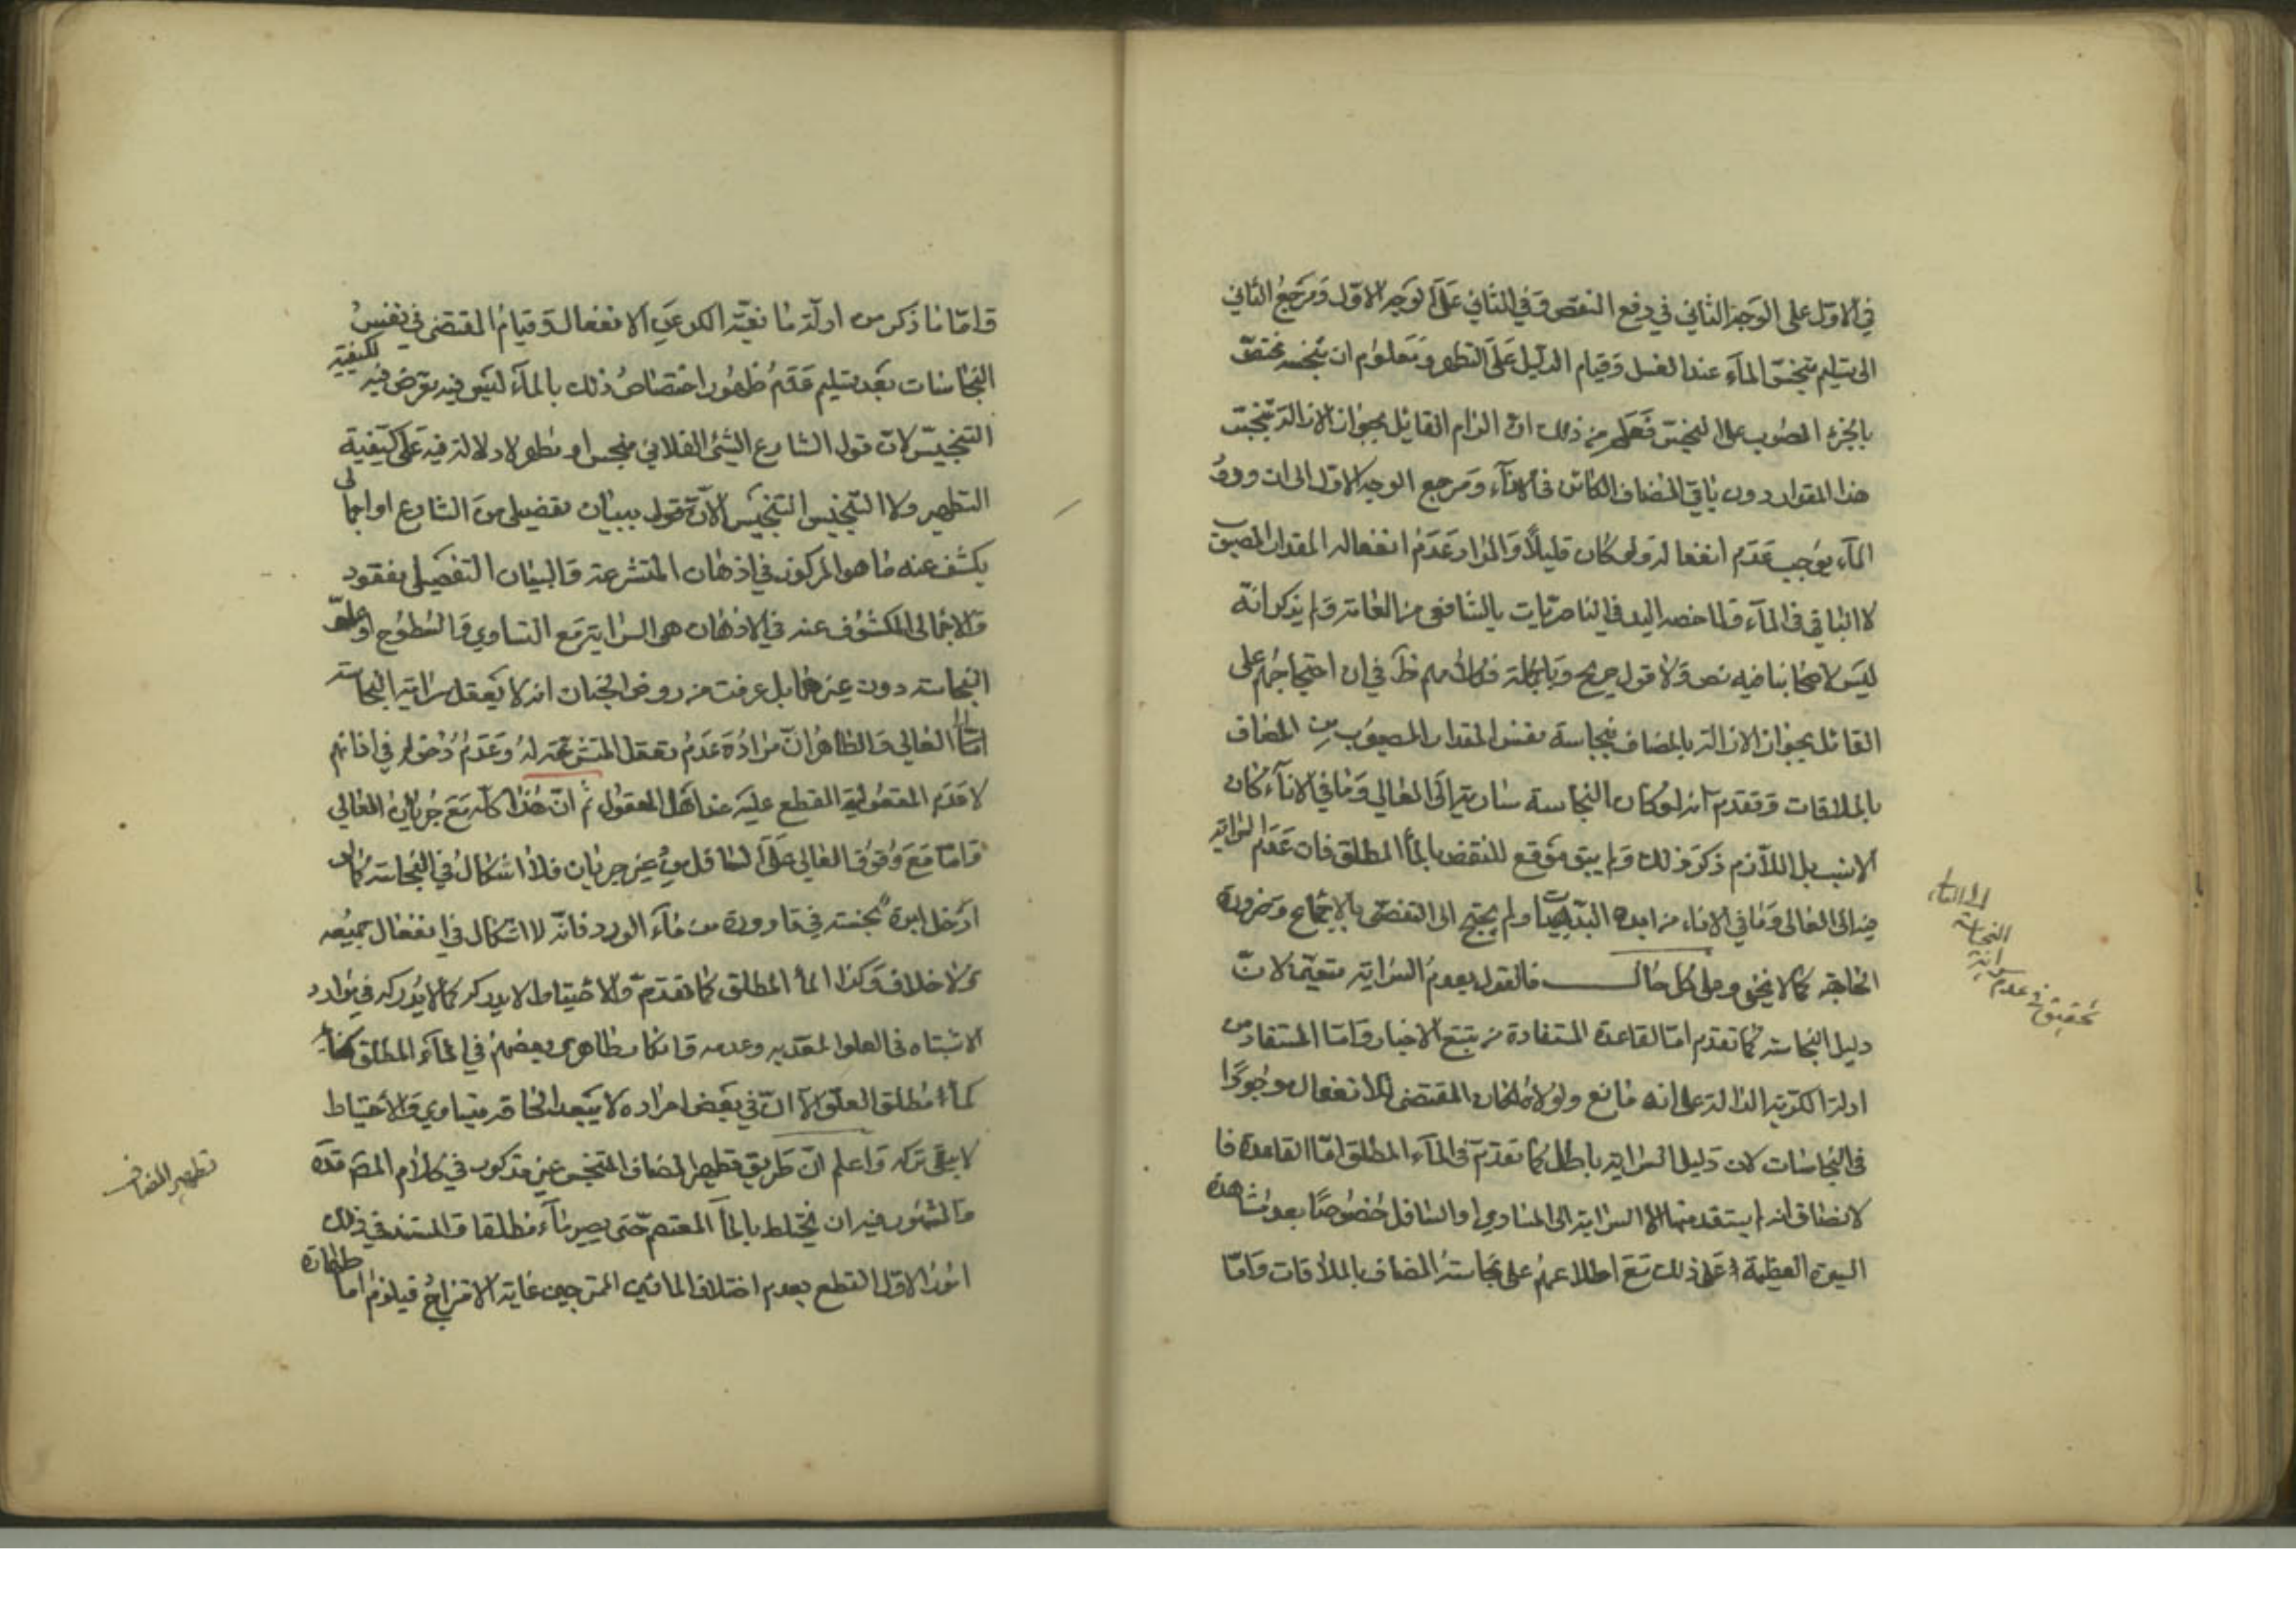 في الاوّل على الوجه الثاني في دفع النقض وفي الثاني على الوجه الاوّل ومرجع الثاني
الى تسليم تنجّس المآء عند الغسل وقيام الدليل على التطهر ومعلوم ان تنجسه مختصّ
بالجزء المصبوب على النجس فعلم من ذلك انّ الزام القائل بجواز الازالة تنجّس
هذا المقدار دون باقي المضاف الكائن في الاناء ومرجع الوجه الاوّل الى ان ورود
المآء يوجب عدم انفعاله ولو كان قليلاً والمراد عدم انفعال المقدار المصبوب
لا الباقي في المآء ولذا خصه السيد في الناصريات بالشافعي من العامة ولم يذكر انّه
ليس لاصحابنا فيه نص ولا قول صريح وبالجملة فكلامهم ظ في ان احتجاجهم على
القائل بجواز الازالة بالمضاف بنجاسة نفس المقدار المصبوب من المضاف
بالملاقات وتقدم انه لو كان النجاسة سارية الى العالي وما في الاناء كان
الانسب بل اللازم ذكر ذلك ولم يبق موقع للنقض بالمآ المطلق فان عدم السراية
منه الى العالي وما في الاناء من ابده البديهيات ولم يحتج الى التفصّي بالاجماع وضرورة
الحاجة كما لا يخفى وعلى كل حال فالقول بعدم السراية متعيّن لانّ
دليل النجاسة كما تقدم امّا القاعدة المستفادة من تتبع الاخبار وامّا المستفاد من
ادلة الكرّية الدالة على انه مانع ولولاه لكان المقتضى للانفعال موجودًا
في النجاسات لان دليل السراية باطل كما تقدّم في المآء المطلق امّا القاعدة فا
لانصاف انه لم يستفد منها الا السراية الى المساوي او السافل خصوصًا بعد مشاهدة
السيرة العظيمة على ذلك مع اطلاعهم على نجاسة المضاف بالملاقات وامّا
تحقيق في عدم سراية النجاسة الى العالي
وامّا ما ذكر من ادلّة مانعيّة الكر عن الانفعال وقيام المقتضى في نفس
النجاسات بعد تسليم عدم ظهور اختصاص ذلك بالمآء ليس فيه تعرّض فيه لكيفيّة
التنجيس لانّ قول الشارع الشيئ الفلاني منجس او مطهر لا دلالة فيه على كيفية
التطهير ولا التنجيس التنجيس الّا بقول ببيان تفصيلي من الشارع او اجمالي
يكشف عنه ما هو المركوز في اذهان المتشرعة والبيان التفصيلي مفقود
والاجمالي المكشوف عنه في الاذهان هي السراية مع التساوي والسطوح او علوّ
النجاسة دون غيرها بل عرفت من روض الجنان انه لا يعقل سراية النجاسة
الى العالي والظاهر انّ مراده عدم تعقل المتشرعة له وعدم دخوله في اذهانهم
لا عدم المعقولية القطع عليه عند اهل العقول ثم انّ هذا كلّه مع جريان العالي
وامّا مع وقوف العالي على السافل من غير جريان فلا اشكال في النجاسة كما لو
ادخل ابرة نجسة في قارورة من مآء الورد فانّه لا اشكال في انفعال جميعه
ولا خلاف وكذا المآ المطلق كما تقدم والاحتياط لا يدرك كما لا يدركه في موارد
الاشتباه في العلو المعتد به وعدمه وان كان ظاهر بعضهم في المآء المطلق كفاية
مطلق العلوّ الّا انّ في بعض افراده لا يبعد الحاقه بتساوي والاحتياط
لا ينبغي تركه واعلم انّ طريق تطهير المضاف المتنجس غير مذكور في كلام المص قدّه
والمشهور فيه ان يختلط بالمآ المعتصم حتى يصير مآء مطلقا والمستند في ذلك
امور الاوّل القطع بعدم اختلاف المائين الممتزجين غاية الامتزاج فيلزم امّا طهارة
تطهير المضاف